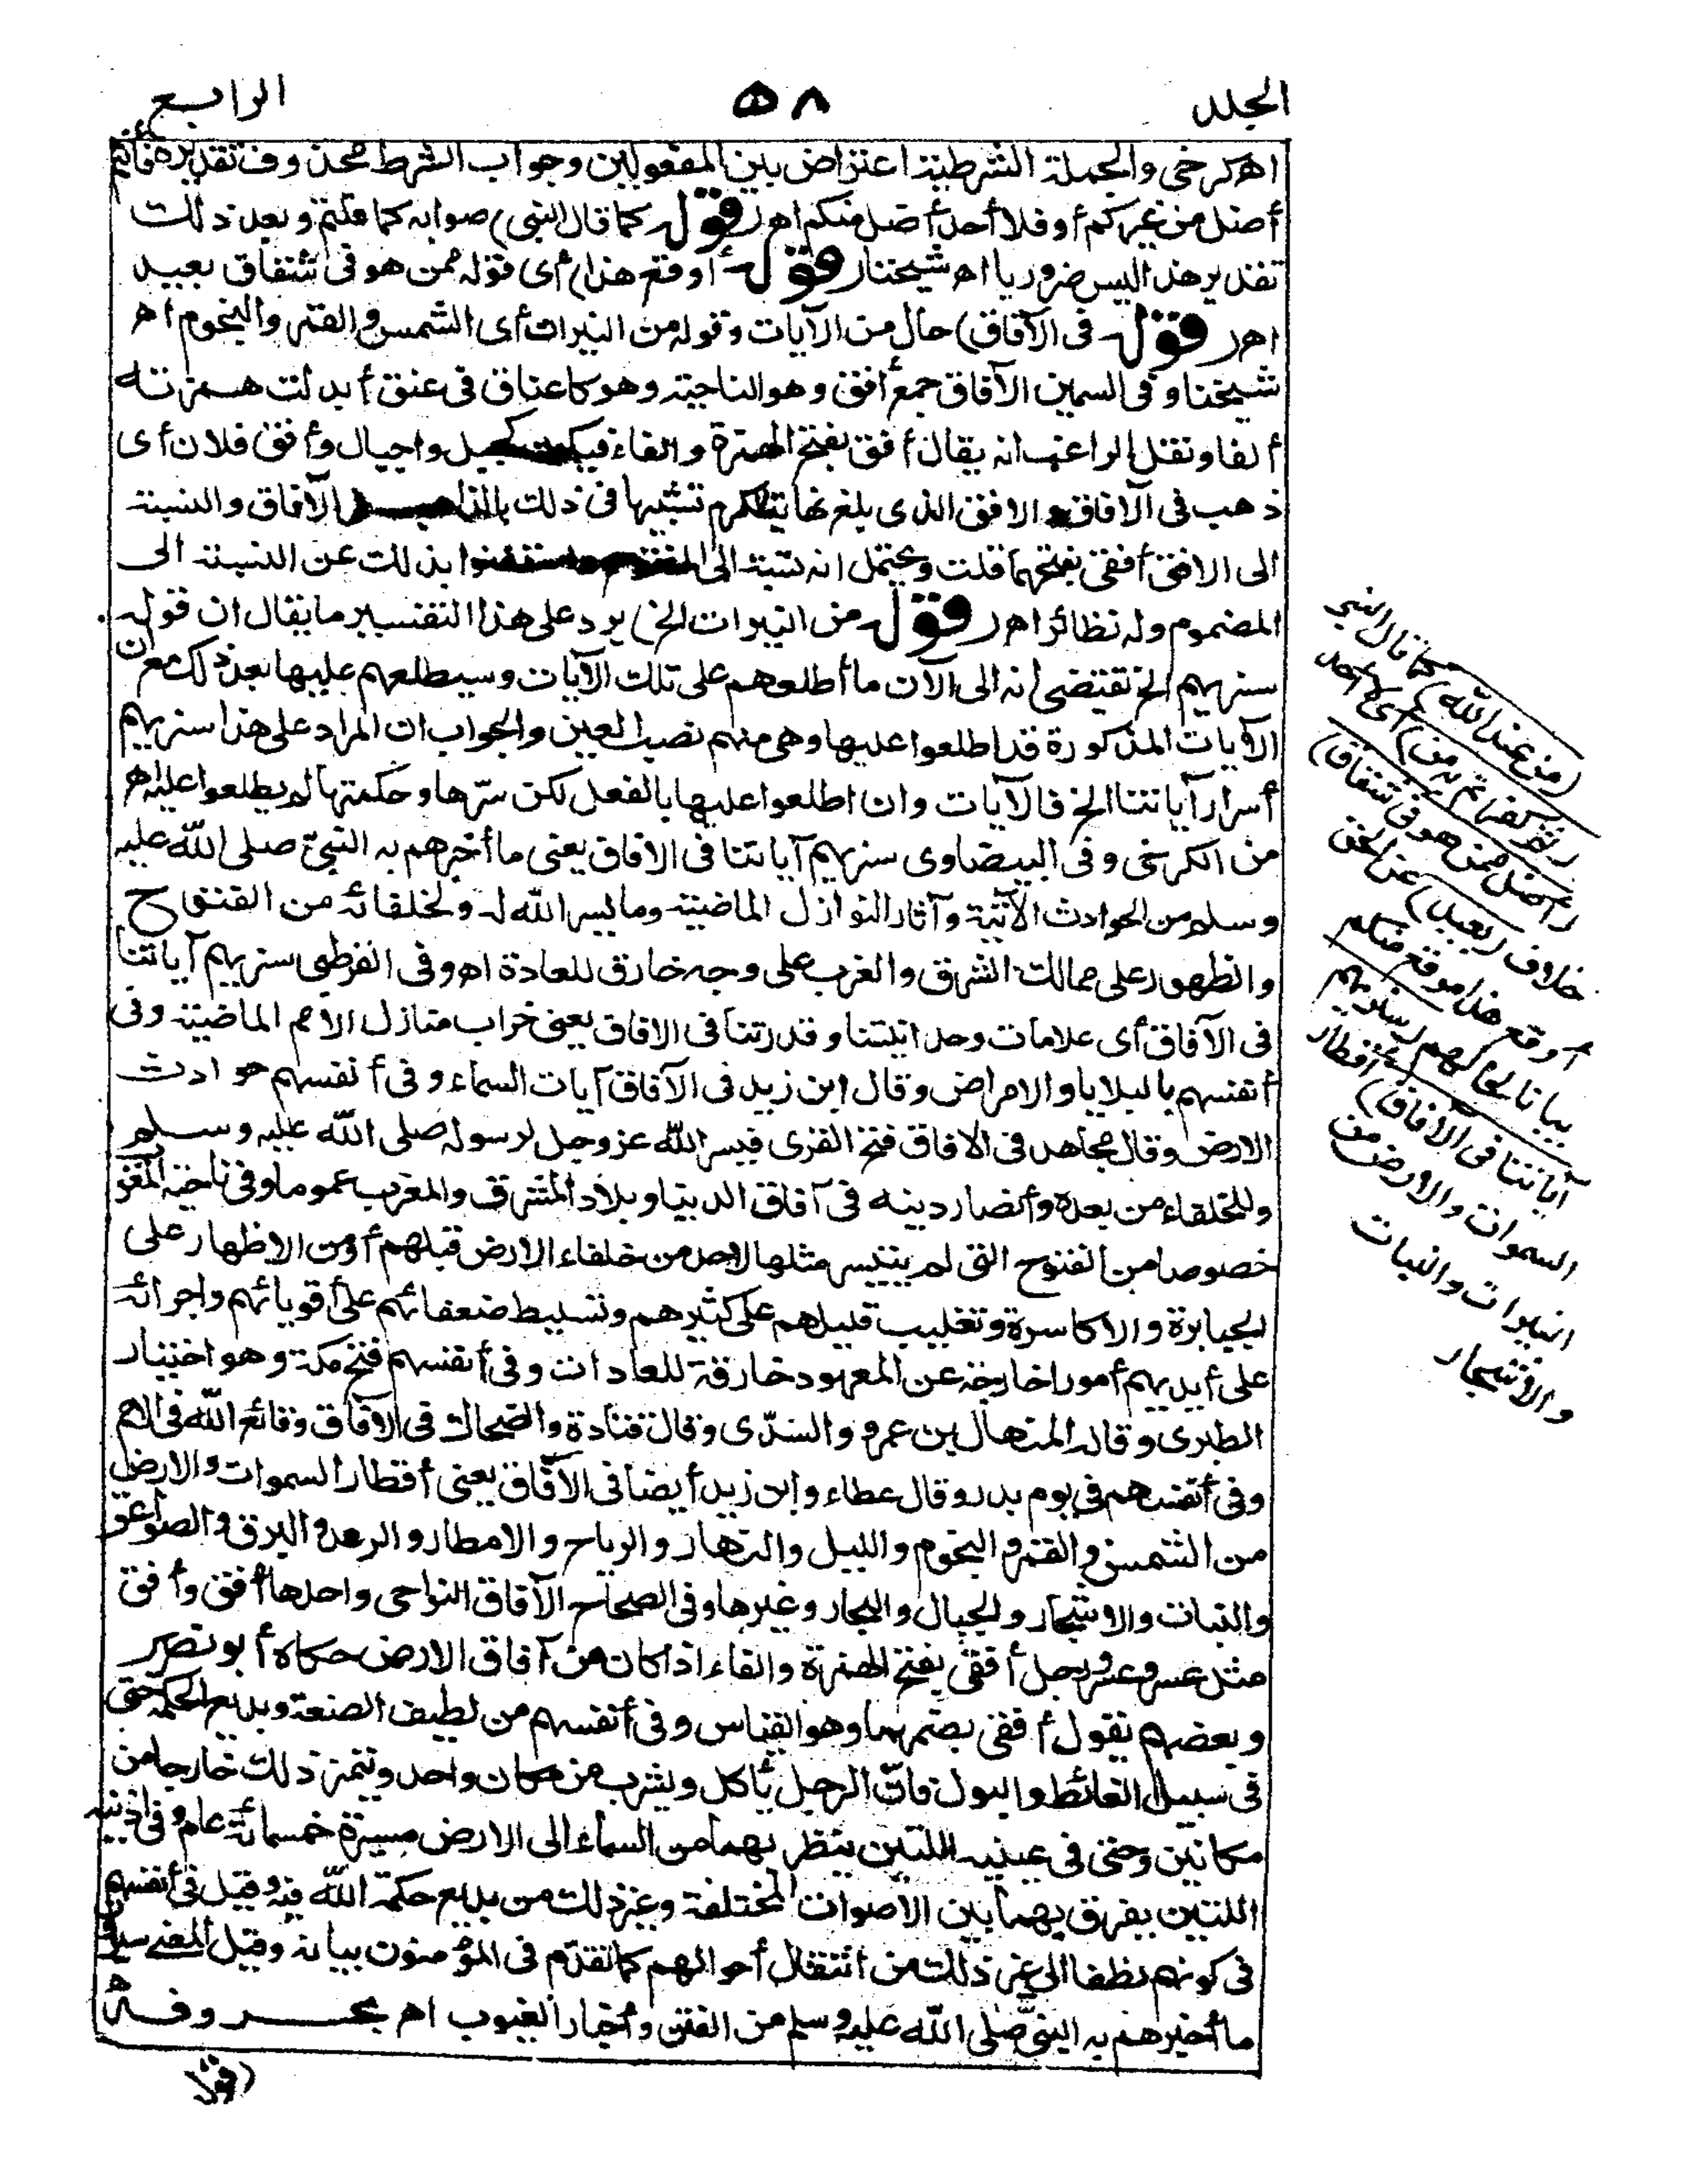 الجلد ٥٨ الرابع
اه كرخى والجملة الشرطية اعتراض بين المفعولين وجواب الشرط محذوف تقديره فأنتم
أضل من غيركم أو فلا أحد أضل منكم اه (قوله كما قال النبى) صوابه كما قلتم وبعد ذلك
تقدير هذا ليس ضروريا اه شيخنا (قوله أوقع هذا) أى قوله ممن هو فى شقاق بعيد
اه (قوله فى الآفاق) حال من الآيات وقوله من النيرات أى الشمس والقمر والنجوم اه
شيخنا وفى السمين الآفاق جمع أفق وهو الناحية وهو كاعناق فى عنق أبدلت همزته
ألفا ونقل الراغب انه يقال أفق بفتح الهمزة والفاء فيكون كجبل واجبال وأفق فلان أى
ذهب فى الآفاق والافق الذى يبلغ نهاية الكرم تشبيها فى ذلك بالذاهب فى الآفاق والنسبة
الى الافق أفقى بفتحهما قلت ويحتمل انه نسبة الى المفتوح واستغنوا بذلك عن النسبة الى
المضموم وله نظائر اه (قوله من النيرات الخ) يرد على هذا التفسير ما يقال ان قوله
سنريهم الخ تقتضى انه الى الآن ما أطلعهم على تلك الآيات وسيطلعهم عليها بعد ذلك مع ان
الآيات المذكورة قد اطلعوا عليها وهى منهم نصب العين والجواب ان المراد على هذا سنريهم
أسرار آياتنا الخ فالآيات وان اطلعوا عليها بالفعل لكن سرّها وحكمتها لم يطلعوا عليه اه
من الكرخى وفى البيضاوى سنريهم آياتنا فى الافاق يعنى ما أخبرهم به النبىّ صلى اللّٰه عليه
وسلم من الحوادث الآتية وآثار النوازل الماضية وما يسر اللّٰه له ولخلفائه من الفتوح
والظهور على ممالك الشرق والغرب على وجه خارق للعادة اه وفى القرطبى سنريهم آياتنا
فى الآفاق أى علامات وحدانيتنا وقدرتنا فى الافاق يعنى خراب منازل الأمم الماضية وفى
أنفسهم بالبلايا والامراض وقال ابن زيد فى الآفاق آيات السماء وفى أنفسهم حوادث
الارض وقال مجاهد فى الافاق فتح القرى فيسر اللّٰه عز وجل لرسوله صلى اللّٰه عليه وسلم
وللخلفاء من بعده وأنصار دينه فى آفاق الدنيا وبلاد المشرق والمغرب عموما وفى ناحية المغرب
خصوصا من الفتوح التى لم يتيسر مثلها لاحد من خلفاء الارض قبلهم أو من الاظهار على
الجبابرة والاكاسرة وتغليب قليلهم على كثيرهم وتسليط ضعفائهم على أقويائهم واجرائه
على أيديهم أمورا خارجة عن المعهود خارقة للعادات وفى أنفسهم فتح مكة وهو اختيار
الطبرى وقاله المنهال بن عمرو والسدّى وقال قتادة والضحاك فى الآفاق وقائع اللّٰه فى الامم
وفى أنفسهم فى يوم بدر وقال عطاء وابن زيد أيضا فى الآفاق يعنى أقطار السموات والارض
من الشمس والقمر والنجوم والليل والنهار والرياح والامطار والرعد والبرق والصواعق
والنبات والاشجار والجبال والبحار وغيرها وفى الصحاح الآفاق النواحى واحدها أفق وأفق
مثل عسر وعسر ورجل أفقى بفتح الهمزة والفاء اذا كان من آفاق الارض حكاه أبو نصر
وبعضهم يقول أفقى بضمهما وهو القياس وفى أنفسهم من لطيف الصنعة وبديع الحكمة حتى
فى سبيل الغائط والبول فانّ الرجل يأكل ويشرب من مكان واحد ويتميز ذلك خارجا من
مكانين وحتى فى عينيه اللتين ينظر بهما من السماء الى الارض مسيرة خمسمائة عام وفى اذنيه
اللتين يفرق بهما بين الاصوات المختلفة وغير ذلك من بديع حكمة اللّٰه فيه وقيل فى أنفسهم
فى كونهم نطفا الى غير ذلك من انتقال أحوالهم كما تقدّم فى المؤمنون بيانه وقيل المعنى سيرون
ما أخبرهم به النبىّ صلى اللّٰه عليه وسلم من الفتن وأخبار الغيوب اه بحروفه
(قوله
(من عند اللّٰه) كما قال النبى
(ثم كفرتم به من) أى لا أحد
(أضل ممن هو فى شقاق)
خلاف (بعيد) عن الحق
أوقع هذا موقع منكم
بيانا لحالهم (سنريهم
آياتنا فى الآفاق) أقطار
السموات والارض من
النيرات والنبات
والاشجار